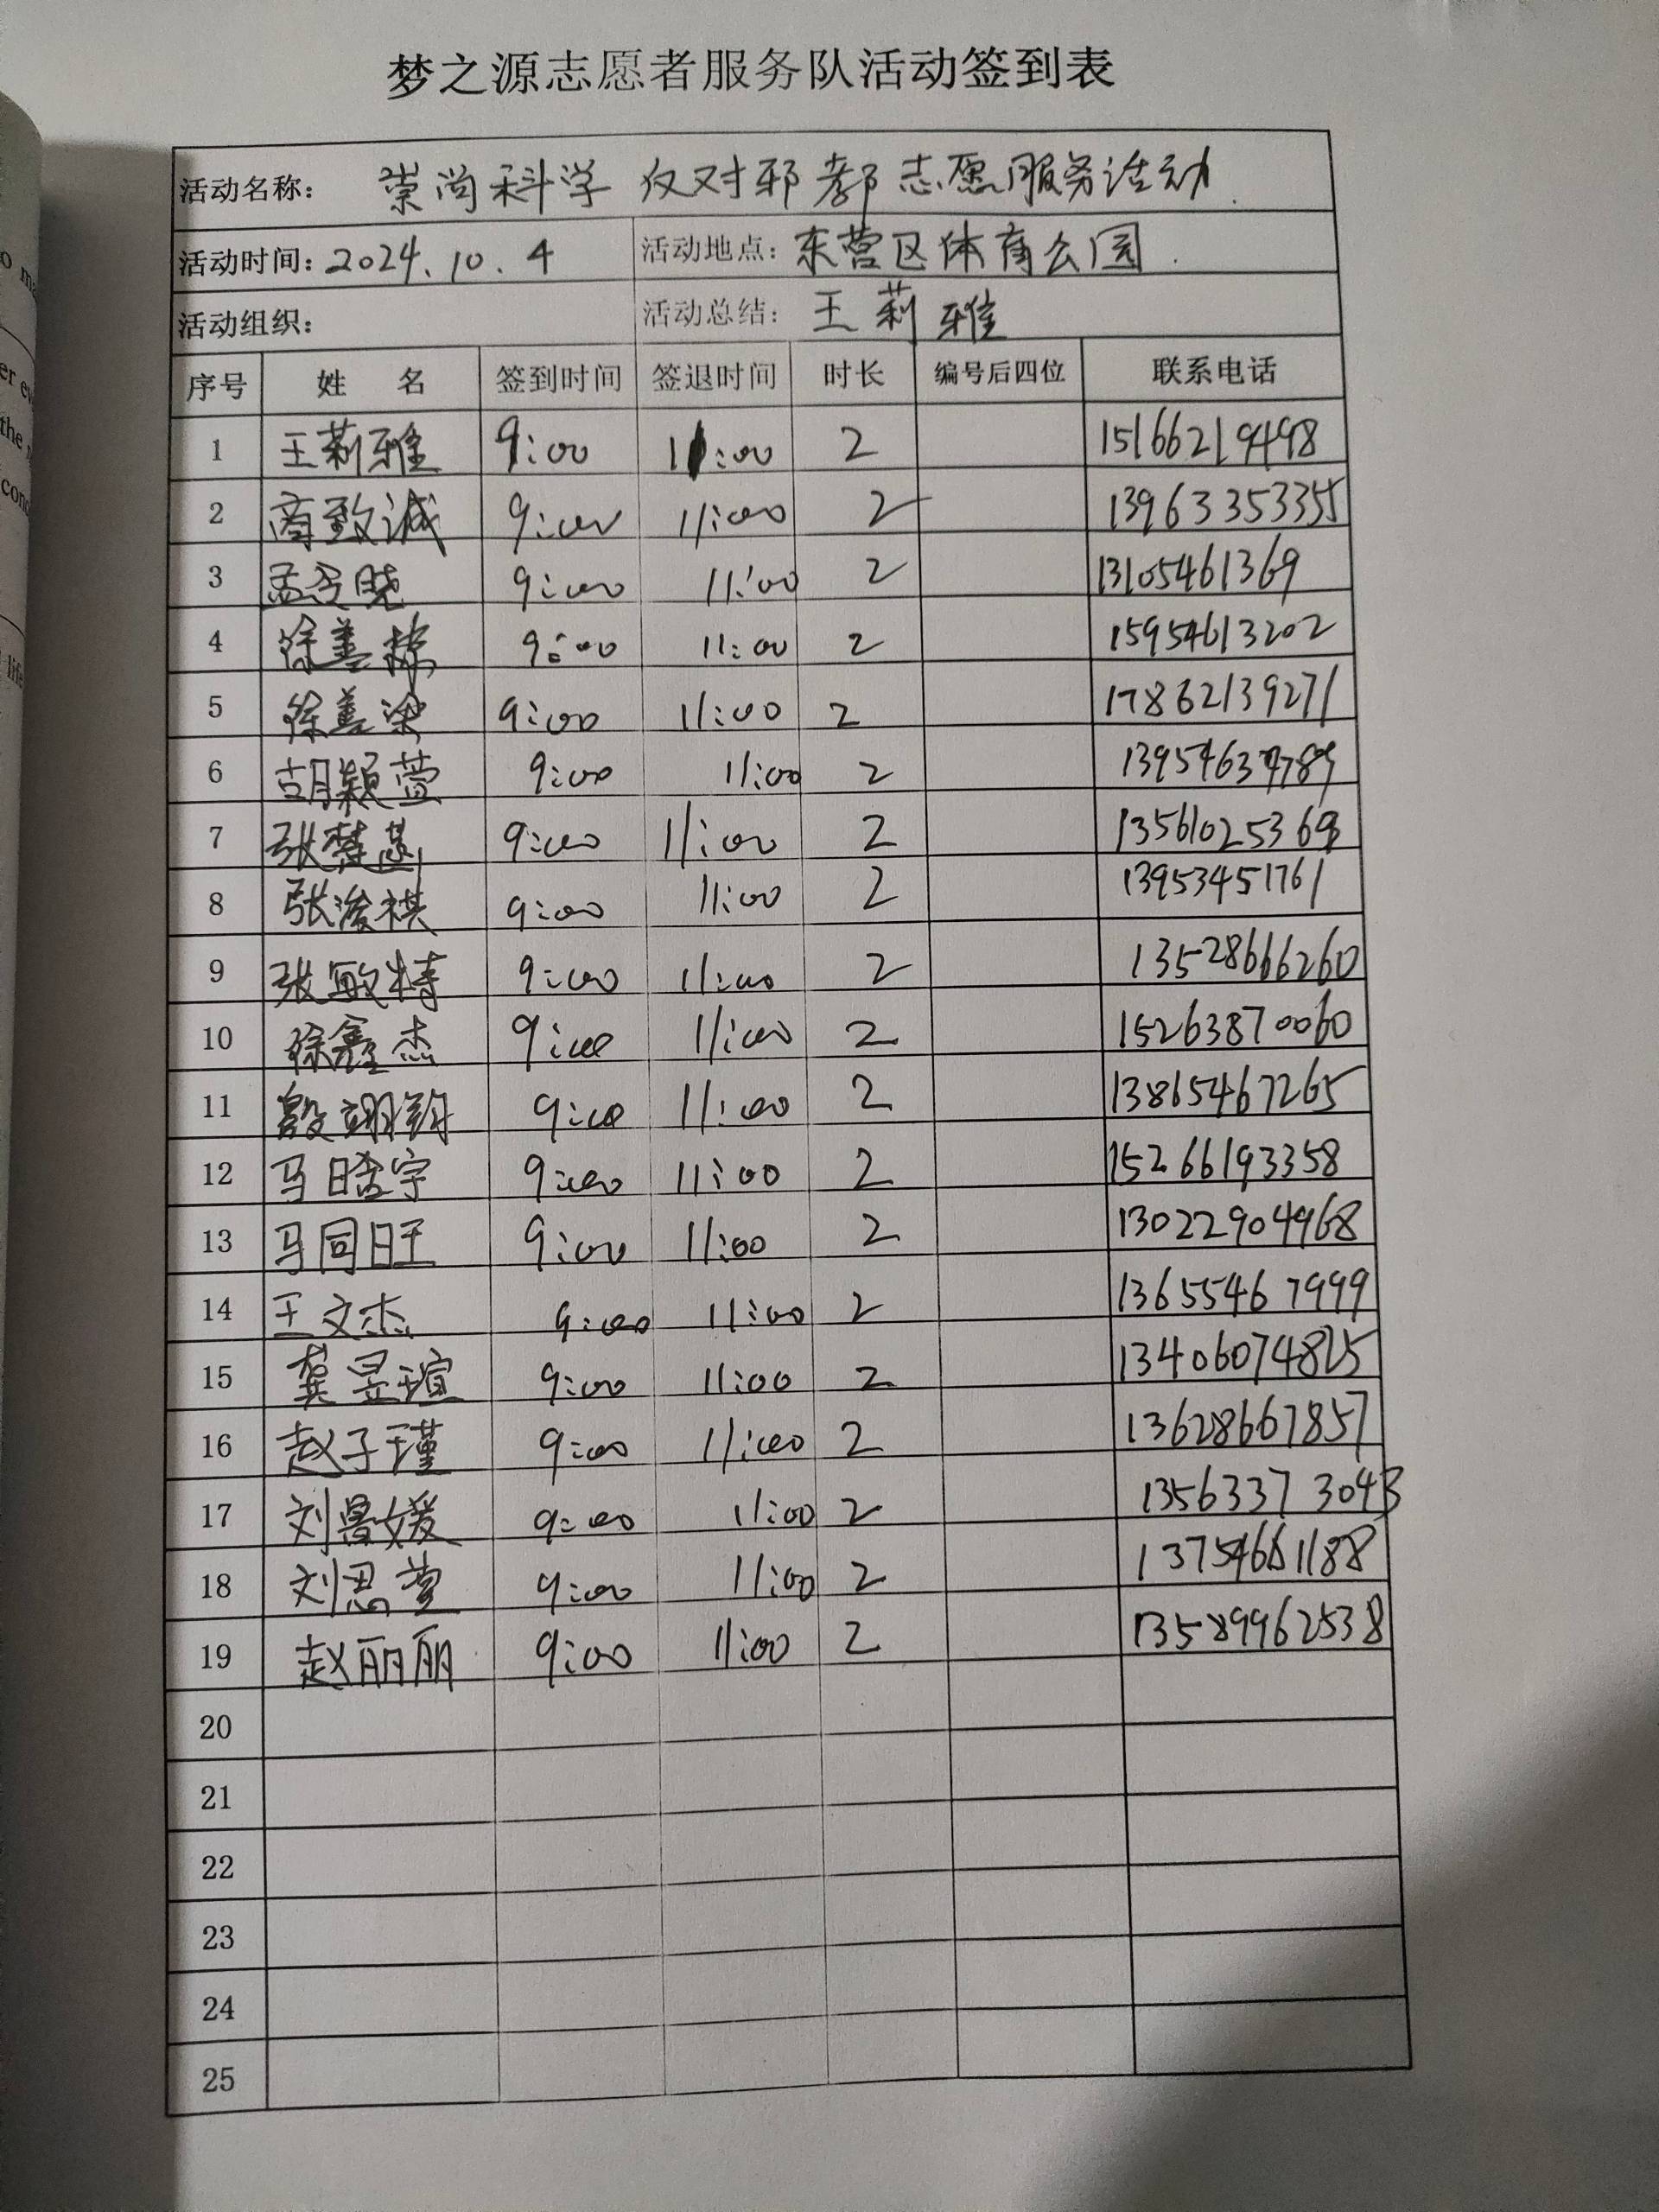 梦之源志愿者服务队活动签到表
活动名称： 崇尚科学 反对邪教 志愿服务活动
活动时间：2024.10.4 活动地点：东营区体育公园
活动组织： 活动总结：王莉雅
序号 姓 名 签到时间 签退时间 时长 编号后四位 联系电话
1 王莉雅 9:00 11:00 2 15166219498
2 商致诚 9:00 11:00 2 13963353355
3 9:00 11:00 2 13105461369
4 徐善栋 9:00 11:00 2 15954613202
5 徐善梁 9:00 11:00 2 17862139271
6 胡颖萱 9:00 11:00 2
7 9:00 11:00 2
8 张浚祺 9:00 11:00 2 13953451761
9 张敏特 9:00 11:00 2 13528666260
10 徐鑫杰 9:00 11:00 2 15263870060
11 殷翊钧 9:00 11:00 2 13865467265
12 马晗宇 9:00 11:00 2 15266193358
13 马同旺 9:00 11:00 2 13022904968
14 王文杰 9:00 11:00 2 13655467999
15 龚昱瑄 9:00 11:00 2 13406074825
16 赵子瑾 9:00 11:00 2 13628667857
17 刘景媛 9:00 11:00 2 13563373043
18 刘思萱 9:00 11:00 2 13754661188
19 赵丽丽 9:00 11:00 2 13589962538
20
21
22
23
24
25